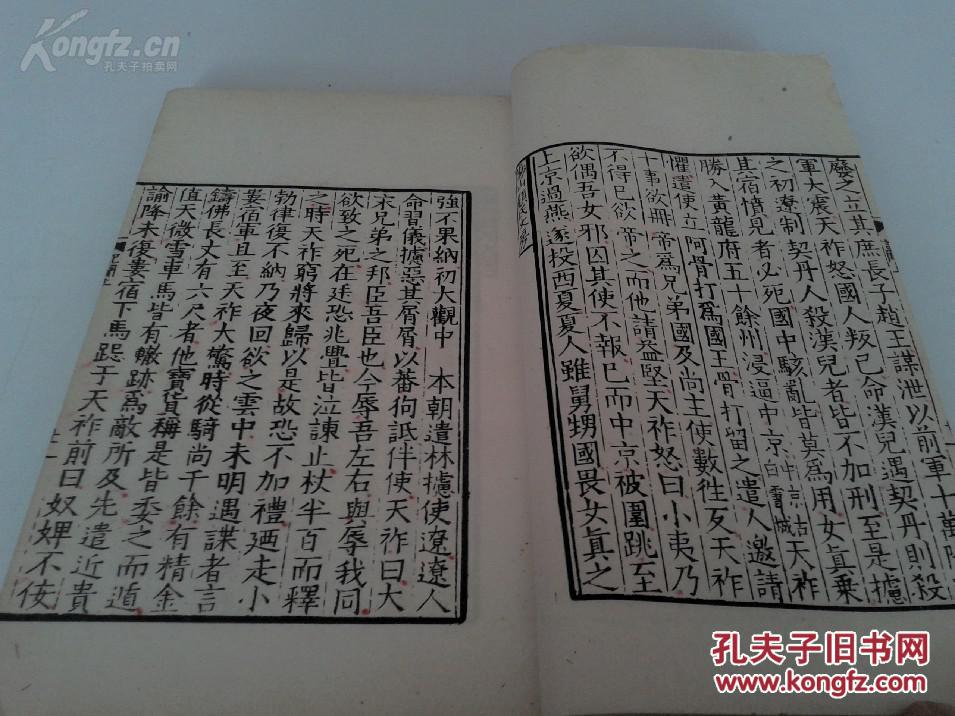 Kongfz.cn
孔夫子拍卖网
廢之立其庶長子趙王謀泄以前軍十萬降
軍大震天祚怒國人叛已命漢兒遇契丹則殺
之初遼制契丹人殺漢兒者皆不加刑至是攄
其宿憤見者必死國中駭亂皆莫為用女真乘
勝入黃龍府五十餘州浸逼中京中京古白霫城天祚
懼遣使立阿骨打為國王骨打留之遣人邀請
十事欲冊帝為兄弟國及尚主使數往反天祚
不得已欲帝之而他請益堅天祚怒曰小夷乃
欲偶吾女邪囚其使不報已而中京被圍跳至
上京過燕遂投西夏夏人雖舅甥國畏女真之
強不果納初大觀中 本朝遣林攄使遼遼人
命習儀攄惡其屑屑以蕃狗詆伴使天祚曰大
宋兄弟之邦臣吾臣也今辱吾左右與辱我同
欲致之死在廷恐兆舋皆泣諫止杖半百而釋
之時天祚窮將來歸以是故恐不加禮廼走小
勃律復不納乃夜回欲之雲中未明遇諜者言
婁宿軍且至天祚大驚時從騎尚千餘有精金
鑄佛長丈有六尺者他寶貨稱是皆委之而遁
值天微雪車馬皆有轍跡為敵所及先遣近貴
諭降未復婁宿下馬跽于天祚前曰奴婢不佞
孔夫子旧书网
www.kongfz.com